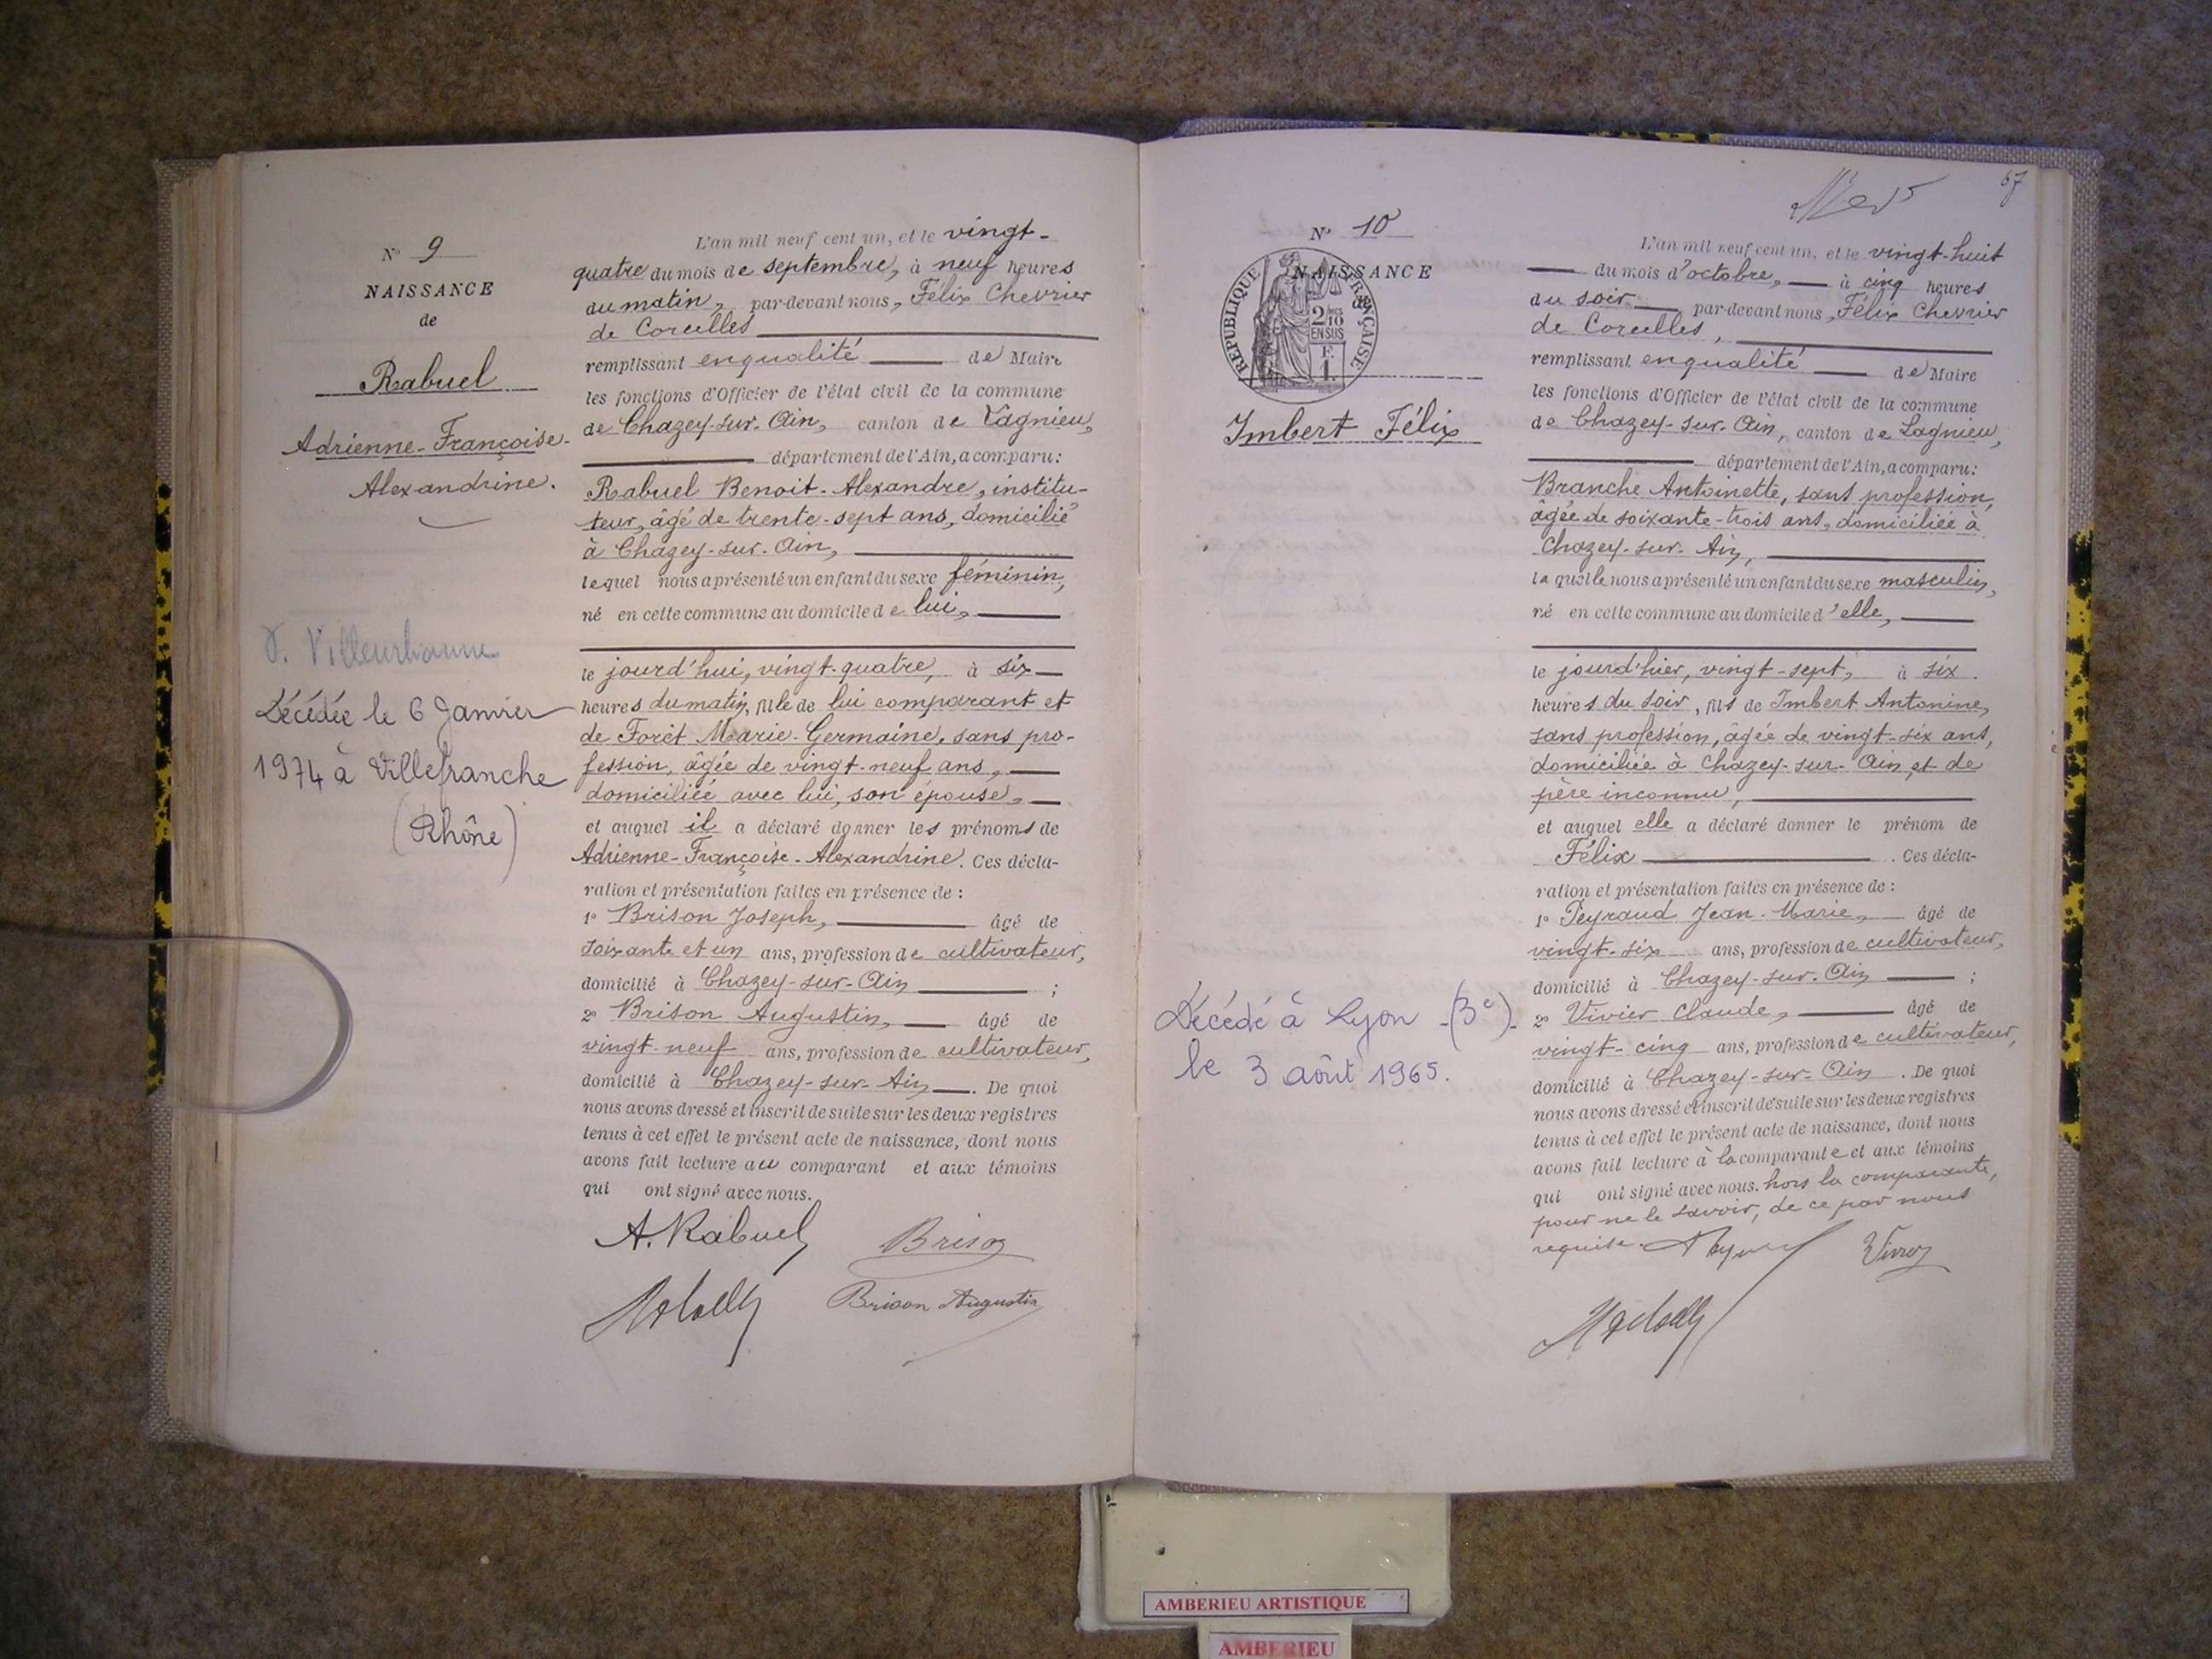 N° 9
NAISSANCE
de
Rabuel
Adrienne-Françoise-
Alexandrine.
D. Villeurbanne
Décédée le 6 Janvier
1974 à Villefranche
(Rhône)
L'an mil neuf cent un, et le vingt-
quatre du mois de septembre, à neuf heures
du matin, par-devant nous, Félix Chevrier
de Corcelles
remplissant en qualité de Maire
les fonctions d'Officier de l'état civil de la commune
de Chazey-sur-Ain, canton de Lagnieu,
département de l'Ain, a comparu :
Rabuel Benoit-Alexandre, institu-
teur, âgé de trente-sept ans, domicilié
à Chazey-sur-Ain,
lequel nous a présenté un enfant du sexe féminin,
né en cette commune au domicile de lui,
le jourd'hui, vingt-quatre, à six
heures du matin, fille de lui comparant et
de Forêt Marie-Germaine, sans pro-
fession, âgée de vingt-neuf ans,
domiciliée avec lui, son épouse,
et auquel il a déclaré donner les prénoms de
Adrienne-Françoise-Alexandrine. Ces décla-
ration et présentation faites en présence de :
1° Brison Joseph, âgé de
soixante et un ans, profession de cultivateur,
domicilié à Chazey-sur-Ain ;
2° Brison Augustin, âgé de
vingt-neuf ans, profession de cultivateur,
domicilié à Chazey-sur-Ain. De quoi
nous avons dressé et inscrit de suite sur les deux registres
tenus à cet effet le présent acte de naissance, dont nous
avons fait lecture au comparant et aux témoins
qui ont signé avec nous.
A. Rabuel Brison
Brison Augustin
67
N° 10
NAISSANCE
RÉPUBLIQUE FRANÇAISE
2/10
EN SUS
F.
1.
Imbert Félix
Décédé à Lyon (3e)
le 3 août 1965.
L'an mil neuf cent un, et le vingt-huit
du mois d'octobre, à cinq heures
du soir par-devant nous, Félix Chevrier
de Corcelles,
remplissant en qualité de Maire
les fonctions d'Officier de l'état civil de la commune
de Chazey-sur-Ain, canton de Lagnieu,
département de l'Ain, a comparu :
Branche Antoinette, sans profession,
âgée de soixante-trois ans, domiciliée à
Chazey-sur-Ain,
laquelle nous a présenté un enfant du sexe masculin,
né en cette commune au domicile d'elle,
le jourd'hier, vingt-sept, à six
heures du soir, fils de Imbert Antonine,
sans profession, âgée de vingt-six ans,
domiciliée à Chazey-sur-Ain, et de
père inconnu,
et auquel elle a déclaré donner le prénom de
Félix. Ces décla-
ration et présentation faites en présence de :
1° Peyraud Jean-Marie, âgé de
vingt-six ans, profession de cultivateur,
domicilié à Chazey-sur-Ain ;
2° Vivier Claude, âgé de
vingt-cinq ans, profession de cultivateur,
domicilié à Chazey-sur-Ain. De quoi
nous avons dressé et inscrit de suite sur les deux registres
tenus à cet effet le présent acte de naissance, dont nous
avons fait lecture à la comparante et aux témoins
qui ont signé avec nous. hors la comparante,
pour ne le savoir, de ce par nous
requise.
AMBERIEU ARTISTIQUE
AMBERIEU